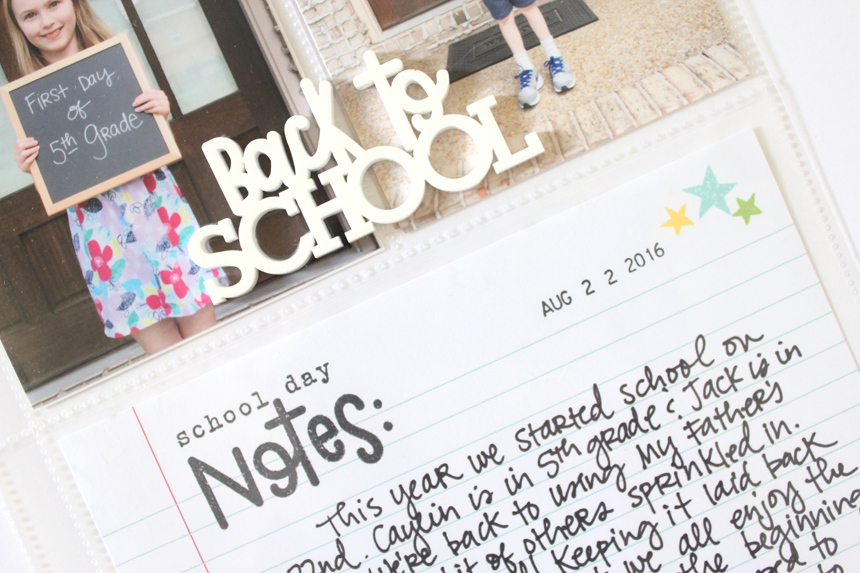 First Day
of
5th Grade
Back to
SCHOOL
AUG 2 2 2016
school day
Notes:
This year we started school on
22nd. Caylin is in 5th grade & Jack is in
We're back to using My Father's
bit of others sprinkled in.
keeping it laid back
we all enjoy the
the beginning
to